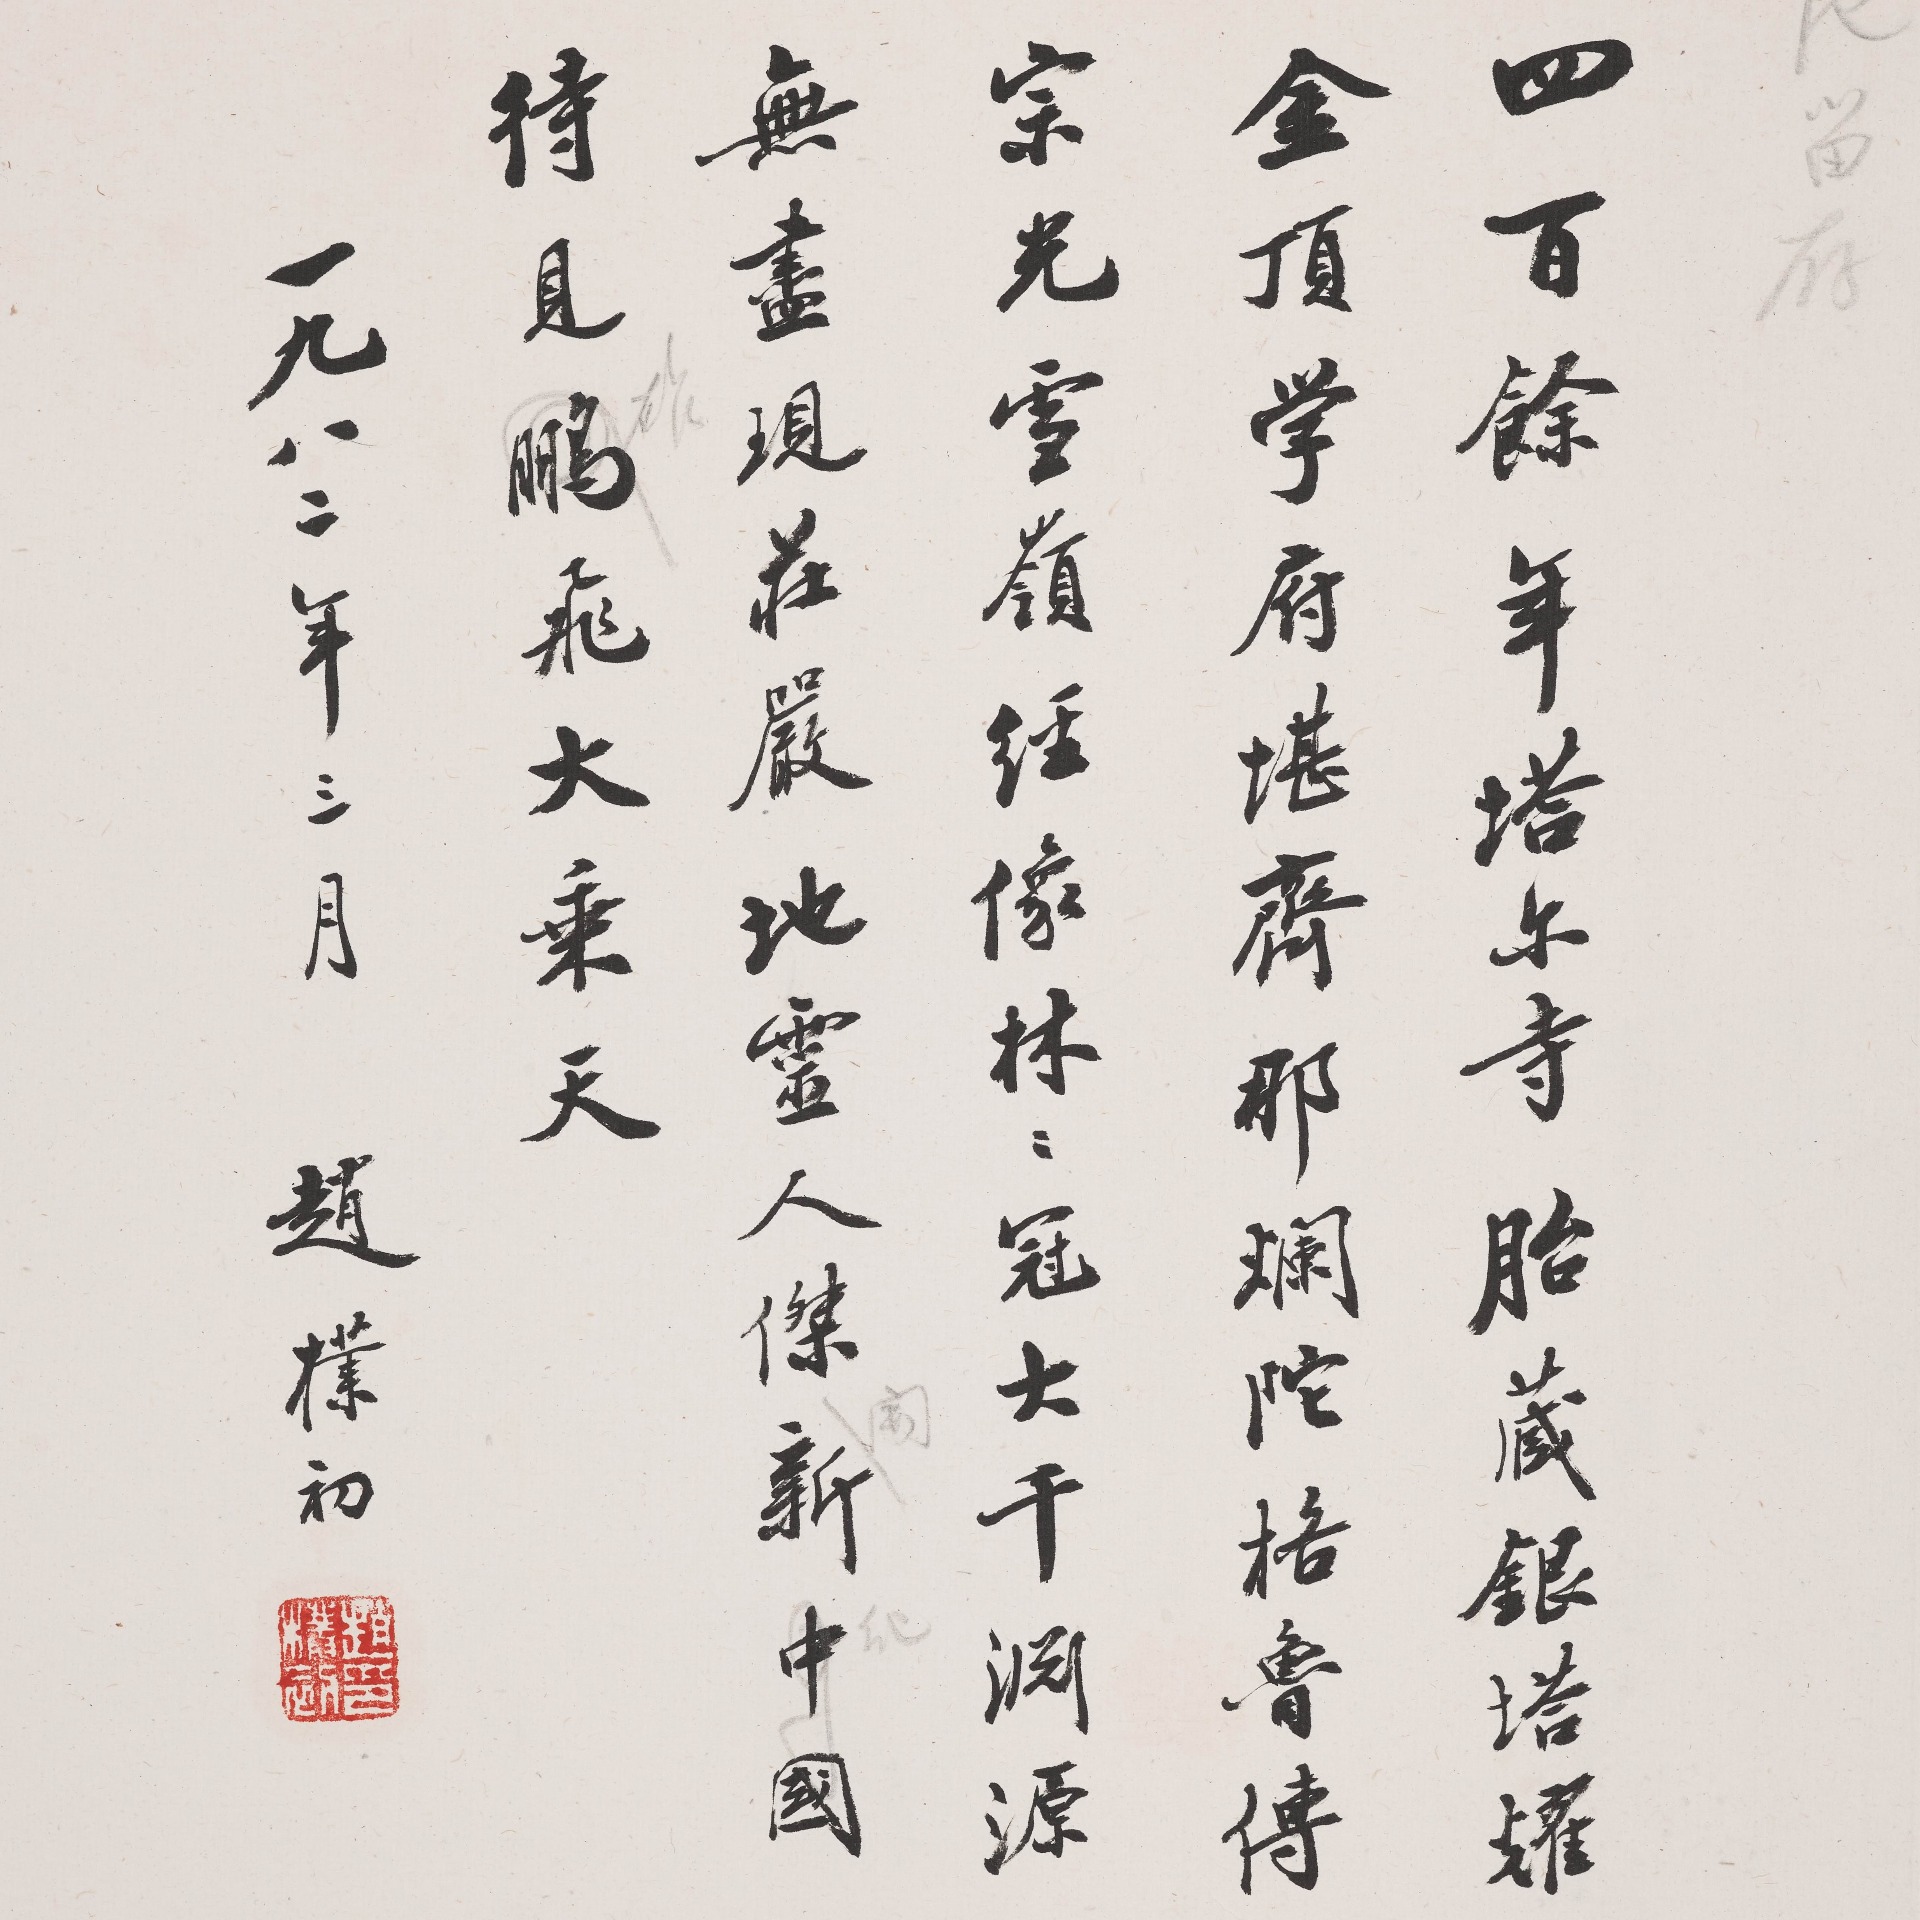 四百餘年塔尔寺胎蔵銀塔耀
金頂学府堪齊那爛陀格魯傳
宗光雪嶺经像林〻冠大千渊源
無盡現莊嚴地靈人傑新中國
待見鵬飛大乗天
一九八二年三月 趙樸初
趙樸初印
留府